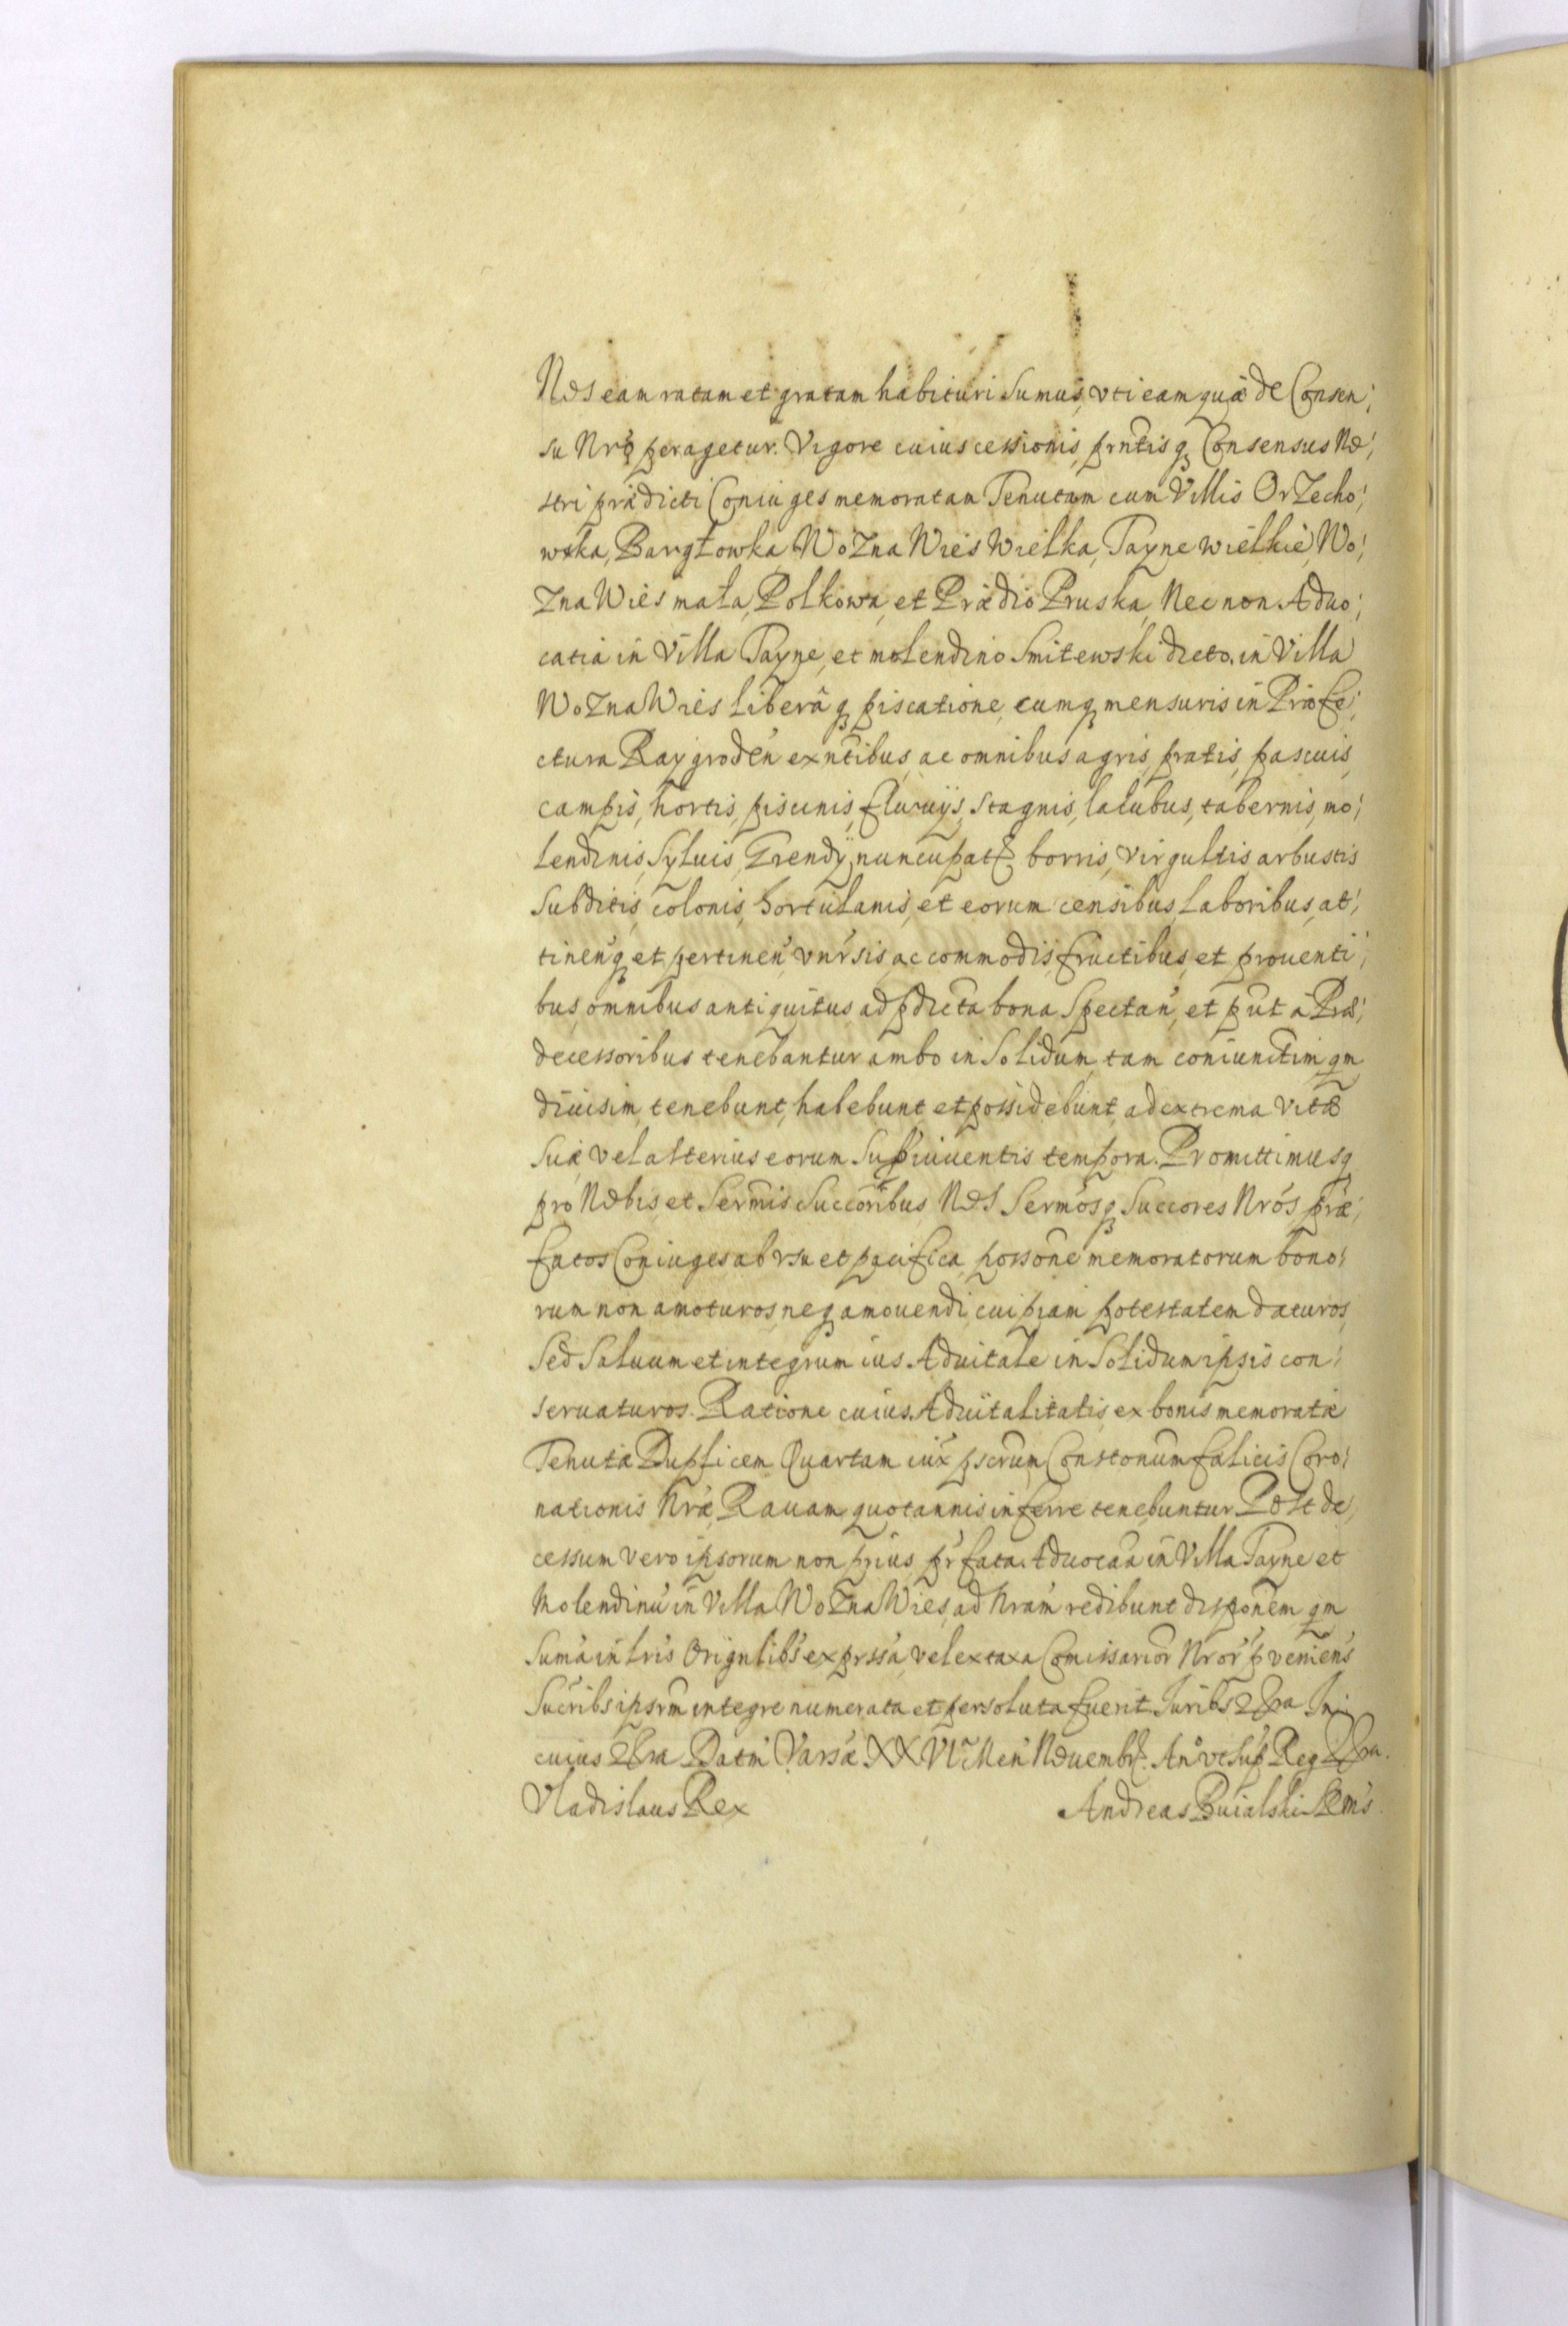 Nos eam ratam et gratam habituri sumus, vti eam quæ de Consen;
su Nrõ peragetur. Vigore cuius cessionis, prntis q; Consensus No;
stri prædicti Coniuges memoratam Tenutam cum Villis OrZecho;
wska, Bargłowka, WoZna Wies Wielka, Tayne wielkie, Wo;
Zna Wies mała, Polkowa, et Prædio Pruska, Nec non Aduo;
catia in Villa Tayne, et molendino Smitewski dicto, in Villa
WoZna Wies liberâ q; piscatione, cumq; mensuris in Præfe;
ctura Raygroden̄ exn̄tibus, ac omnibus agris, pratis, pascuis,
campis, hortis, piscinis, fluuijs, stagnis, lacubus, tabernis, mo;
lendinis, Syluis, Grendÿ nuncupat, borris, virgultis, arbustis
Subditis, colonis, hortulanis, et eorum censibus, laboribus, at;
tinen̄q; et pertinen̄ vnr̄sis, ac commodis, fructibus, et prouenti;
bus, omnibus antiquitus, ad p̄dicta bona Spectan̄, et put à Præ;
decessoribus tenebantur ambo in Solidum, tam coniunctim qm̄
diuisim, tenebunt, habebunt et possidebunt, ad extrema vitæ
Suæ vel alterius eorum Supuiuentis tempora. Promittimusq;
pro Nobis, et Serm̄is Succōribus, Nos Serm̄osq; Succores Nrōs præ;
fatos Coniuges, ab vsu et pacifica possōne memoratorum bono;
rum non amoturos, neq; amouendi, cuipiam potestatem daturos,
Sed Saluum et integrum ius Aduitale in Solidum ipsis con;
seruaturos. Ratione cuius Aduitalitatis, ex bonis memoratæ
Tenutæ Duplicem Quartam iux̄ pscrum Constōnum fælicis Coro;
nationis Nræ, Rauam quotannis inferre tenebuntur. Post de;
cessum vero ipsorum non prius, pr̄fata Aduocāa in Villa Tayne et
Molendinū in Villa WoZna Wies, ad Nram̄ redibunt dispōnem, qm̄
Suma in lris Orignlibs exprssa, vel ex taxa Comissarior Nror pueniens
Sucribs ipsrm integre numerata et persoluta fuerit. Juribs In
cuius Datm̄ Varsæ XXVII Men̄ Nouembr. Ano vt sup Reg
Vladislaus Rex Andreas Buialski